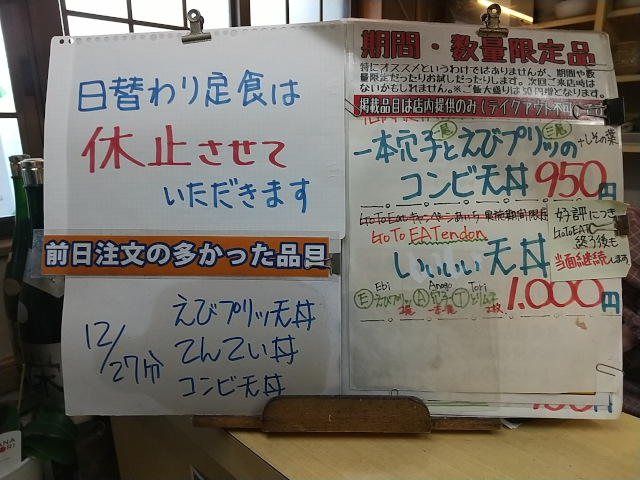 日替わり定食は
休止させて
いただきます
前日注文の多かった品目
12/27分
えびプリッ天丼
てんてい丼
コンビ天丼
期間・数量限定品
特にオススメというわけではありませんが、期間や数
量限定だったりお試しだったりします。次回ご来店時は
ないかもしれません。※ご飯大盛りは50円増となります。
掲載品目は店内提供のみ(テイクアウト不可)です
一本穴子とえびプリッの
+しその葉
コンビ天丼 950円
GoTo EATendon
いいいい天丼
好評につき
GoToEAT
終了後も
当面継続します
Ebi Anago Tori
E えびプリッ A 穴子 T とりムネ
2尾 一本 2枚
1,000円